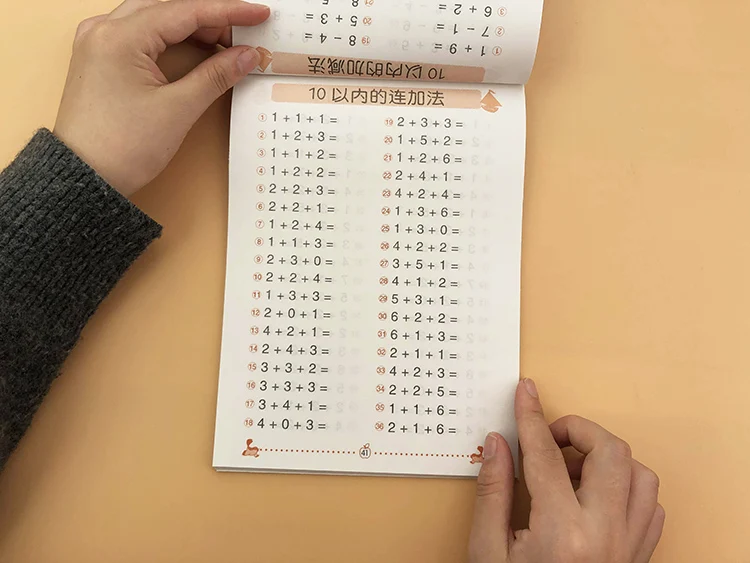 10 以内的加减法
10 以内的连加法
① 1 + 1 + 1 =
② 1 + 2 + 3 =
③ 1 + 1 + 2 =
④ 1 + 2 + 2 =
⑤ 2 + 2 + 3 =
⑥ 2 + 2 + 1 =
⑦ 1 + 2 + 4 =
⑧ 1 + 1 + 3 =
⑨ 2 + 3 + 0 =
⑩ 2 + 2 + 4 =
⑪ 1 + 3 + 3 =
⑫ 2 + 0 + 1 =
⑬ 4 + 2 + 1 =
⑭ 2 + 4 + 3 =
⑮ 3 + 3 + 2 =
⑯ 3 + 3 + 3 =
⑰ 3 + 4 + 1 =
⑱ 4 + 0 + 3 =
⑲ 2 + 3 + 3 =
⑳ 1 + 5 + 2 =
㉑ 1 + 2 + 6 =
㉒ 2 + 4 + 1 =
㉓ 4 + 2 + 4 =
㉔ 1 + 3 + 6 =
㉕ 1 + 3 + 0 =
㉖ 4 + 2 + 2 =
㉗ 3 + 5 + 1 =
㉘ 4 + 1 + 2 =
㉙ 5 + 3 + 1 =
㉚ 6 + 2 + 2 =
㉛ 6 + 1 + 3 =
㉜ 2 + 1 + 1 =
㉝ 4 + 2 + 3 =
㉞ 2 + 2 + 5 =
㉟ 1 + 1 + 6 =
㊱ 2 + 1 + 6 =
41